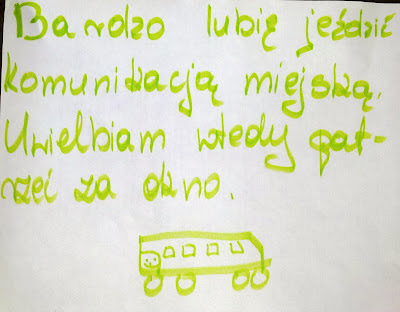 Bardzo lubię jeździć
komunikacją miejską.
Uwielbiam wtedy pat-
rzeć za okno.